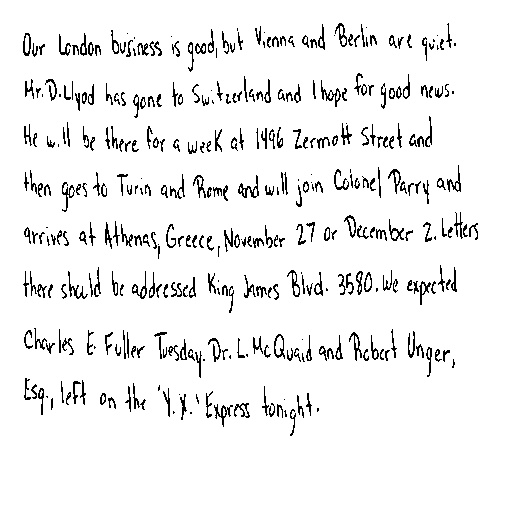 Our London business is good, but Vienna and Berlin are quiet.
Mr. D. Llyod has gone to Switzerland and I hope for good news.
He will be there for a week at 1496 Zermott Street and
then goes to Turin and Rome and will join Colonel Parry and
arrives at Athenas, Greece, November 27 or December 2. Letters
there should be addressed King James Blvd. 3580. We expected
Charles E. Fuller Tuesday. Dr. L. McQuaid and Robert Unger,
Esq., left on the 'Y.X.' Express tonight.